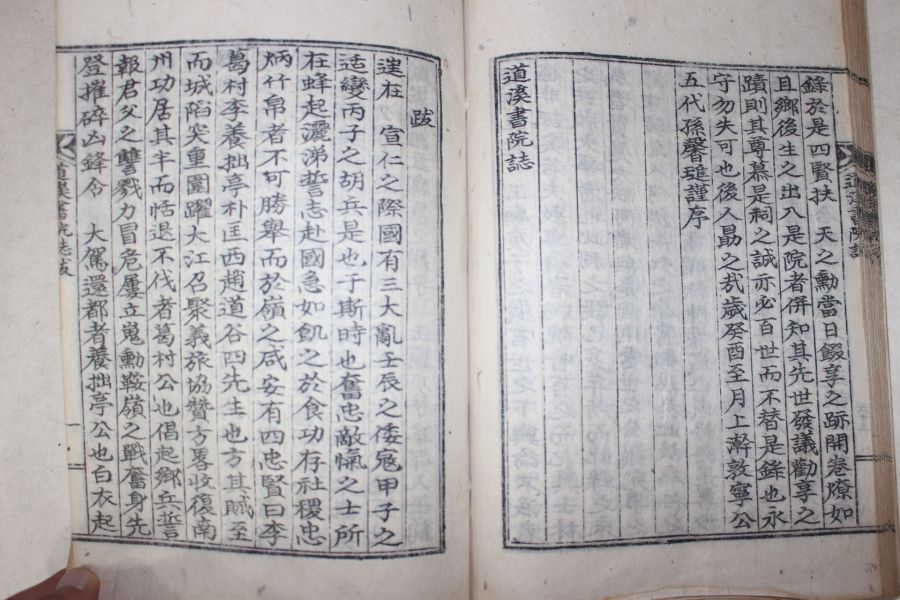 錄於是四賢扶 天之勳當日錣享之跡開卷燎如
且鄉後生之出入是院者併知其先世發議勸享之
蹟則其尊慕是祠之誠亦必百世而不替是錄也永
守勿失可也後人勗之哉歲癸酉至月上澣敦寧公
五代孫馨璡謹序
道溪書院誌
道溪書院誌
跋
逴在 宣仁之際國有三大亂壬辰之倭寇甲子之
适變丙子之胡兵是也于斯時也奮忠敵愾之士所
在蜂起灑涕誓志赴國急如飢之於食功存社稷忠
炳竹帛者不可勝舉而於嶺之咸安有四忠賢曰李
葛村李養拙亭朴匡西趙道谷四先生也方其賊至
而城陷突重圍躍大江召聚義旅協贊方畧收復南
州功居其半而恬退不伐者葛村公也倡起鄉兵誓
報君父之讐戮力冒危屢立嵬勳鞍嶺之戰奮身先
登摧碎凶鋒令 大駕還都者養拙亭公也白衣起
道溪書院誌跋
一